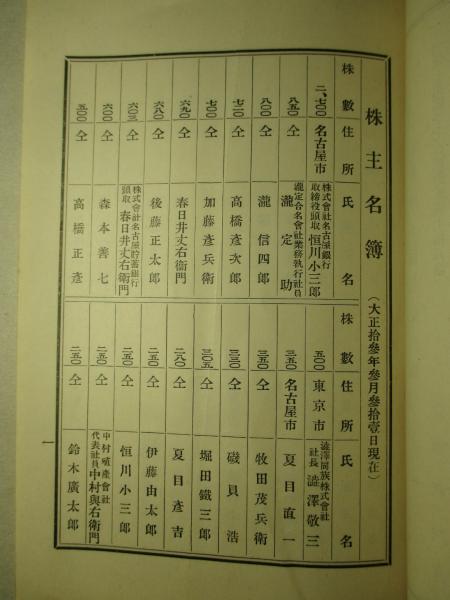 株主名簿(大正拾參年參月參拾壹日現在)
株數 住所 氏名
二、七00 名古屋市 株式會社名古屋銀行取締役頭取 恒川小三郎
八五0 仝 瀧定合名會社業務執行社員 瀧定助
八00 仝 瀧信四郎
七二0 仝 高橋彦次郎
七00 仝 加藤彦兵衛
六九0 仝 春日井丈右衞門
六八0 仝 後藤正太郎
六0三 仝 株式會社名古屋貯蓄銀行頭取 春日井丈右衞門
六00 仝 森本善七
五00 仝 高橋正彦
株數 住所 氏名
五00 東京市 澁澤同族株式會社社長 澁澤敬三
三五0 名古屋市 夏目直一
三五0 仝 牧田茂兵衞
三三0 仝 磯貝浩
三0五 仝 堀田鐵三郎
二八0 仝 夏目彦吉
二五0 仝 伊藤由太郎
二五0 仝 恒川小三郎
二五0 仝 中村殖產會社代表社員 中村與右衞門
二五0 仝 鈴木廣太郎
一